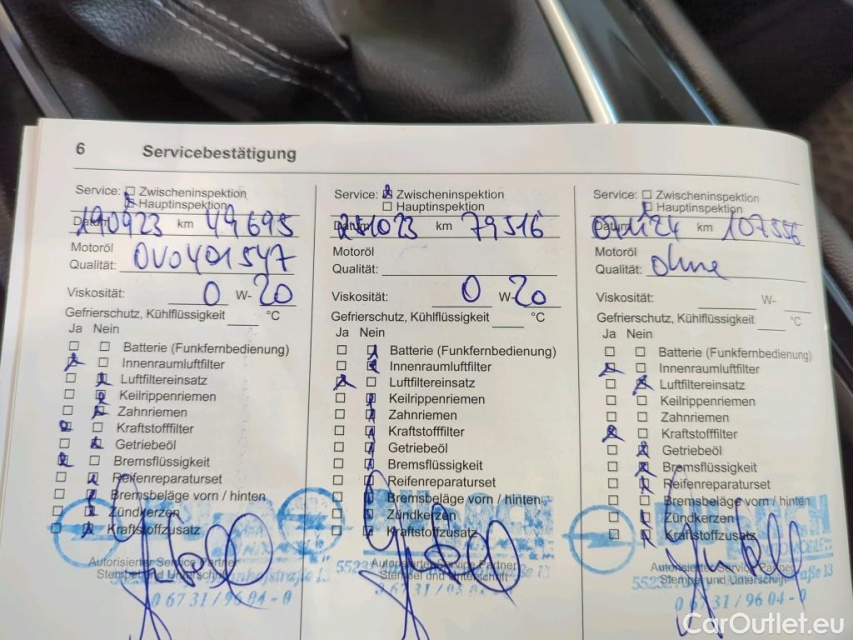 6 Servicebestätigung
Service: Zwischeninspektion
Hauptinspektion
Datum 190923 km 49695
Motoröl
Qualität: OVO401547
Viskosität: 0 W-20
Gefrierschutz, Kühlflüssigkeit °C
Ja Nein
Batterie (Funkfernbedienung)
Innenraumluftfilter
Luftfiltereinsatz
Keilrippenriemen
Zahnriemen
Kraftstofffilter
Getriebeöl
Bremsflüssigkeit
Reifenreparaturset
Bremsbeläge vorn / hinten
Zündkerzen
Kraftstoffzusatz
Autorisierter Service Partner
Stempel und Unterschrift
06731/9604-0
Service: Zwischeninspektion
Hauptinspektion
Datum km 79516
Motoröl
Qualität:
Viskosität: 0 W-20
Gefrierschutz, Kühlflüssigkeit °C
Ja Nein
Batterie (Funkfernbedienung)
Innenraumluftfilter
Luftfiltereinsatz
Keilrippenriemen
Zahnriemen
Kraftstofffilter
Getriebeöl
Bremsflüssigkeit
Reifenreparaturset
Bremsbeläge vorn / hinten
Zündkerzen
Kraftstoffzusatz
Autorisierter Service Partner
Stempel und Unterschrift
Service: Zwischeninspektion
Hauptinspektion
Datum km 107556
Motoröl
Qualität: ohne
Viskosität: W-
Gefrierschutz, Kühlflüssigkeit °C
Ja Nein
Batterie (Funkfernbedienung)
Innenraumluftfilter
Luftfiltereinsatz
Keilrippenriemen
Zahnriemen
Kraftstofffilter
Getriebeöl
Bremsflüssigkeit
Reifenreparaturset
Bremsbeläge vorn / hinten
Zündkerzen
Kraftstoffzusatz
Autorisierter Service Partner
Stempel und Unterschrift
06731/9604-0
CarOutlet.eu